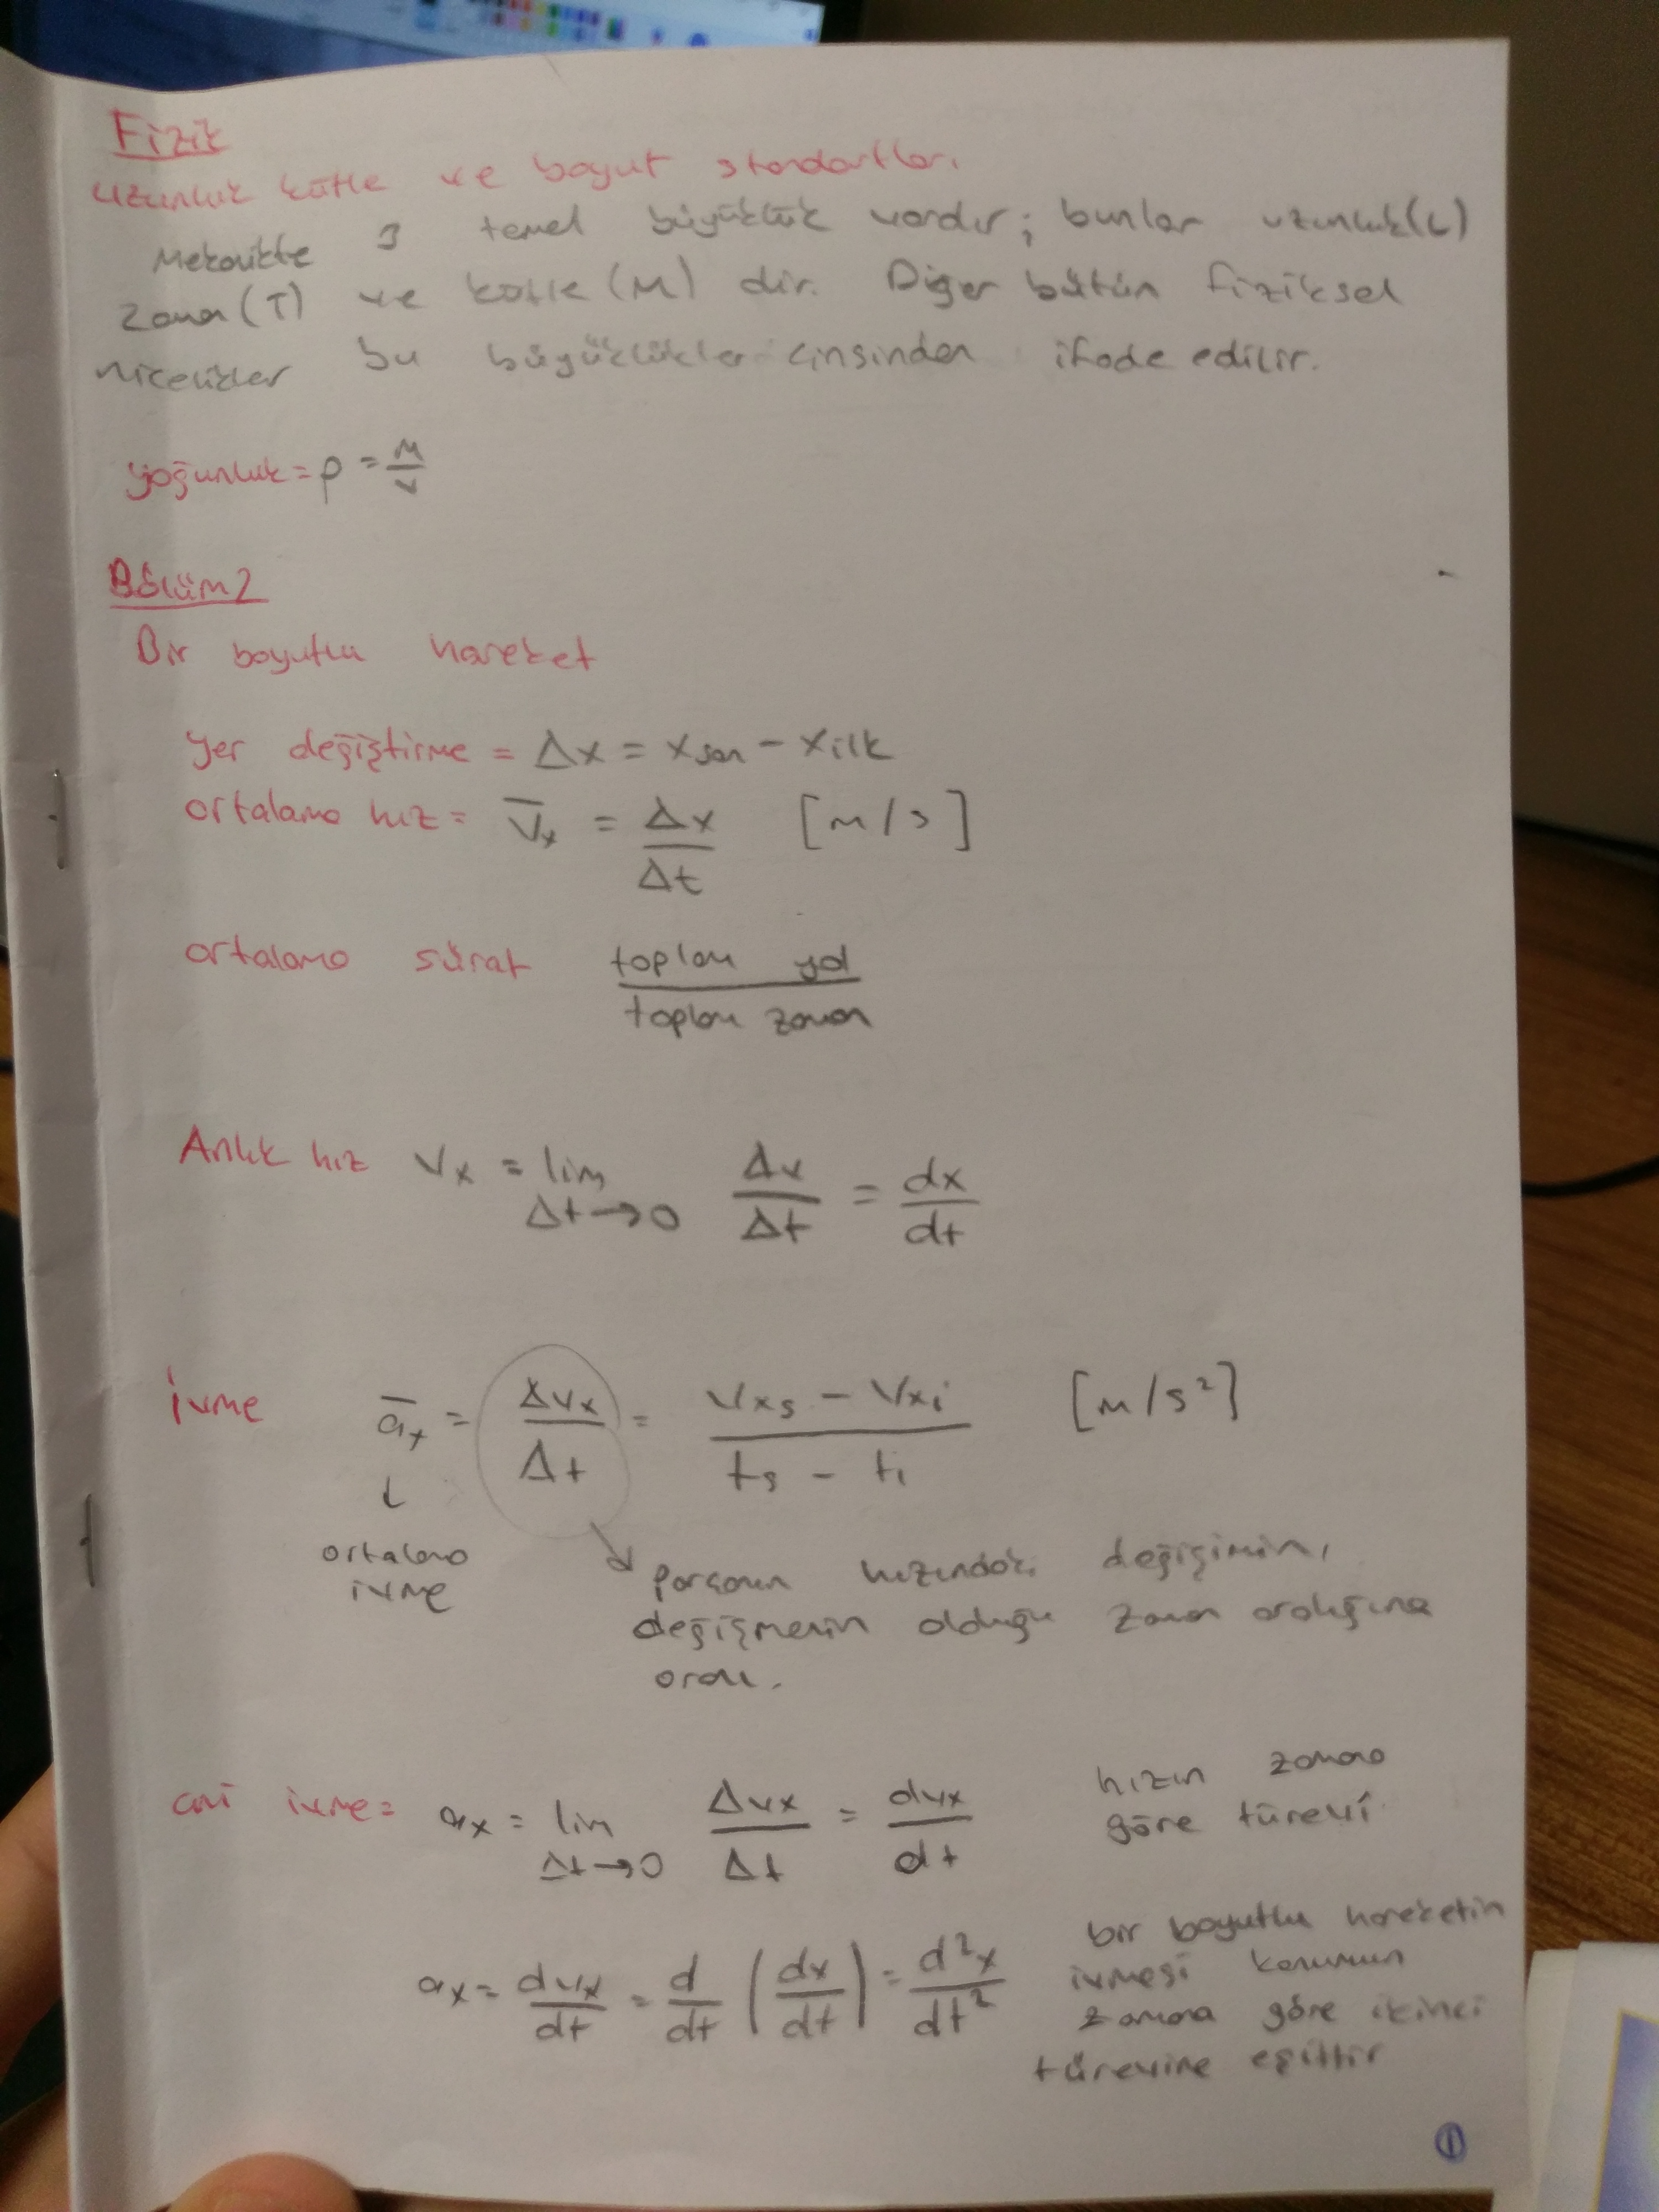 Fizik
Uzunluk kütle ve boyut standartları
Mekanikte 3 temel büyüklük vardır; bunlar uzunluk(L)
Zaman(T) ve kütle (M) dir. Diğer bütün fiziksel
nicelikler bu büyüklükler cinsinden ifade edilir.
yoğunluk = ρ = M/V
Bölüm 2
Bir boyutlu hareket
Yer değiştirme = Δx = xson - xilk
ortalama hız = V̅x = Δx/Δt [m/s]
ortalama sürat toplam yol / toplam zaman
Anlık hız Vx = lim Δt→0 Δx/Δt = dx/dt
İvme a̅x = ΔVx/Δt = (Vxs - Vxi)/(ts - ti) [m/s²]
ortalama ivme
parçanın hızındaki değişimin,
değişmenin olduğu zaman aralığına
oranı.
ani ivme = ax = lim Δt→0 Δvx/Δt = dvx/dt
hızın zamana
göre türevi
ax = dvx/dt = d/dt (dx/dt) = d²x/dt²
bir boyutlu hareketin
ivmesi konumun
zamana göre ikinci
türevine eşittir
1